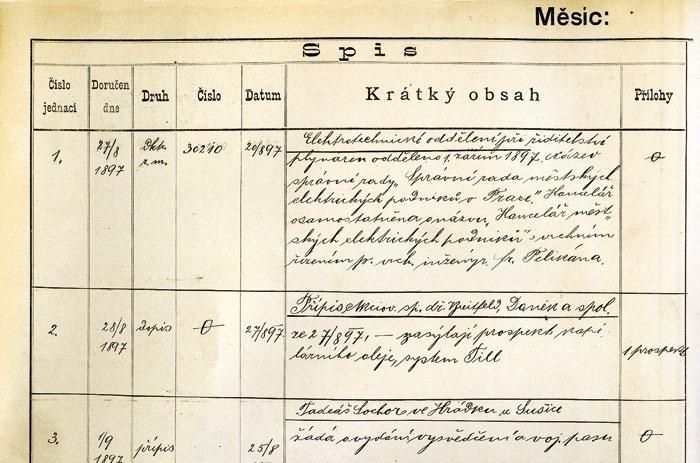 Měsíc:
Spis
Číslo jednací
Doručen dne
Druh
Číslo
Datum
Krátký obsah
Přílohy
1.
27/8 1897
30210
20/897
0
Elektrotechnické oddělení při ředitelství
plynáren odděleno 1. zářím 1897. Název
správní rady „Správní rada městských
elektrických podniků v Praze“. Kancelář
osamostatněna a názvu „Kancelář měst-
ských elektrických podniků“ s vrchním
řízením p. vrch. inženýr. Fr. Pelikána.
2.
28/8 1897
dopis
0
27/897
1 prospekt
Přípis Akciov. sp. dř. Breitfeld, Daněk a spol.
ze 27/8 97, — zasýlají prospekt kapi-
lárního oleje, system Fill
3.
1/9 1897
přípis
25/8
0
Tadeáš Sochor ve Hrádku u Sušice
žádá o vydání vysvědčení a voj. pasu